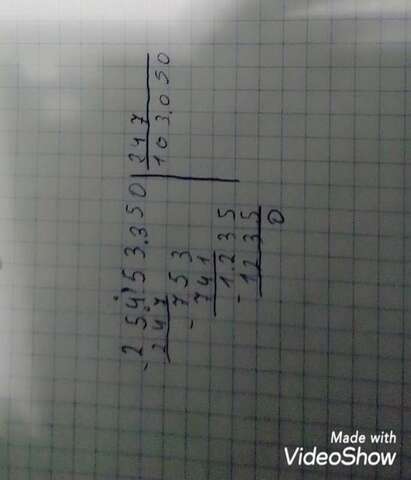 - 254'53.350 | 247
247 | 103.050
- 753
741
1.235
- 1235
0
Made with
VideoShow